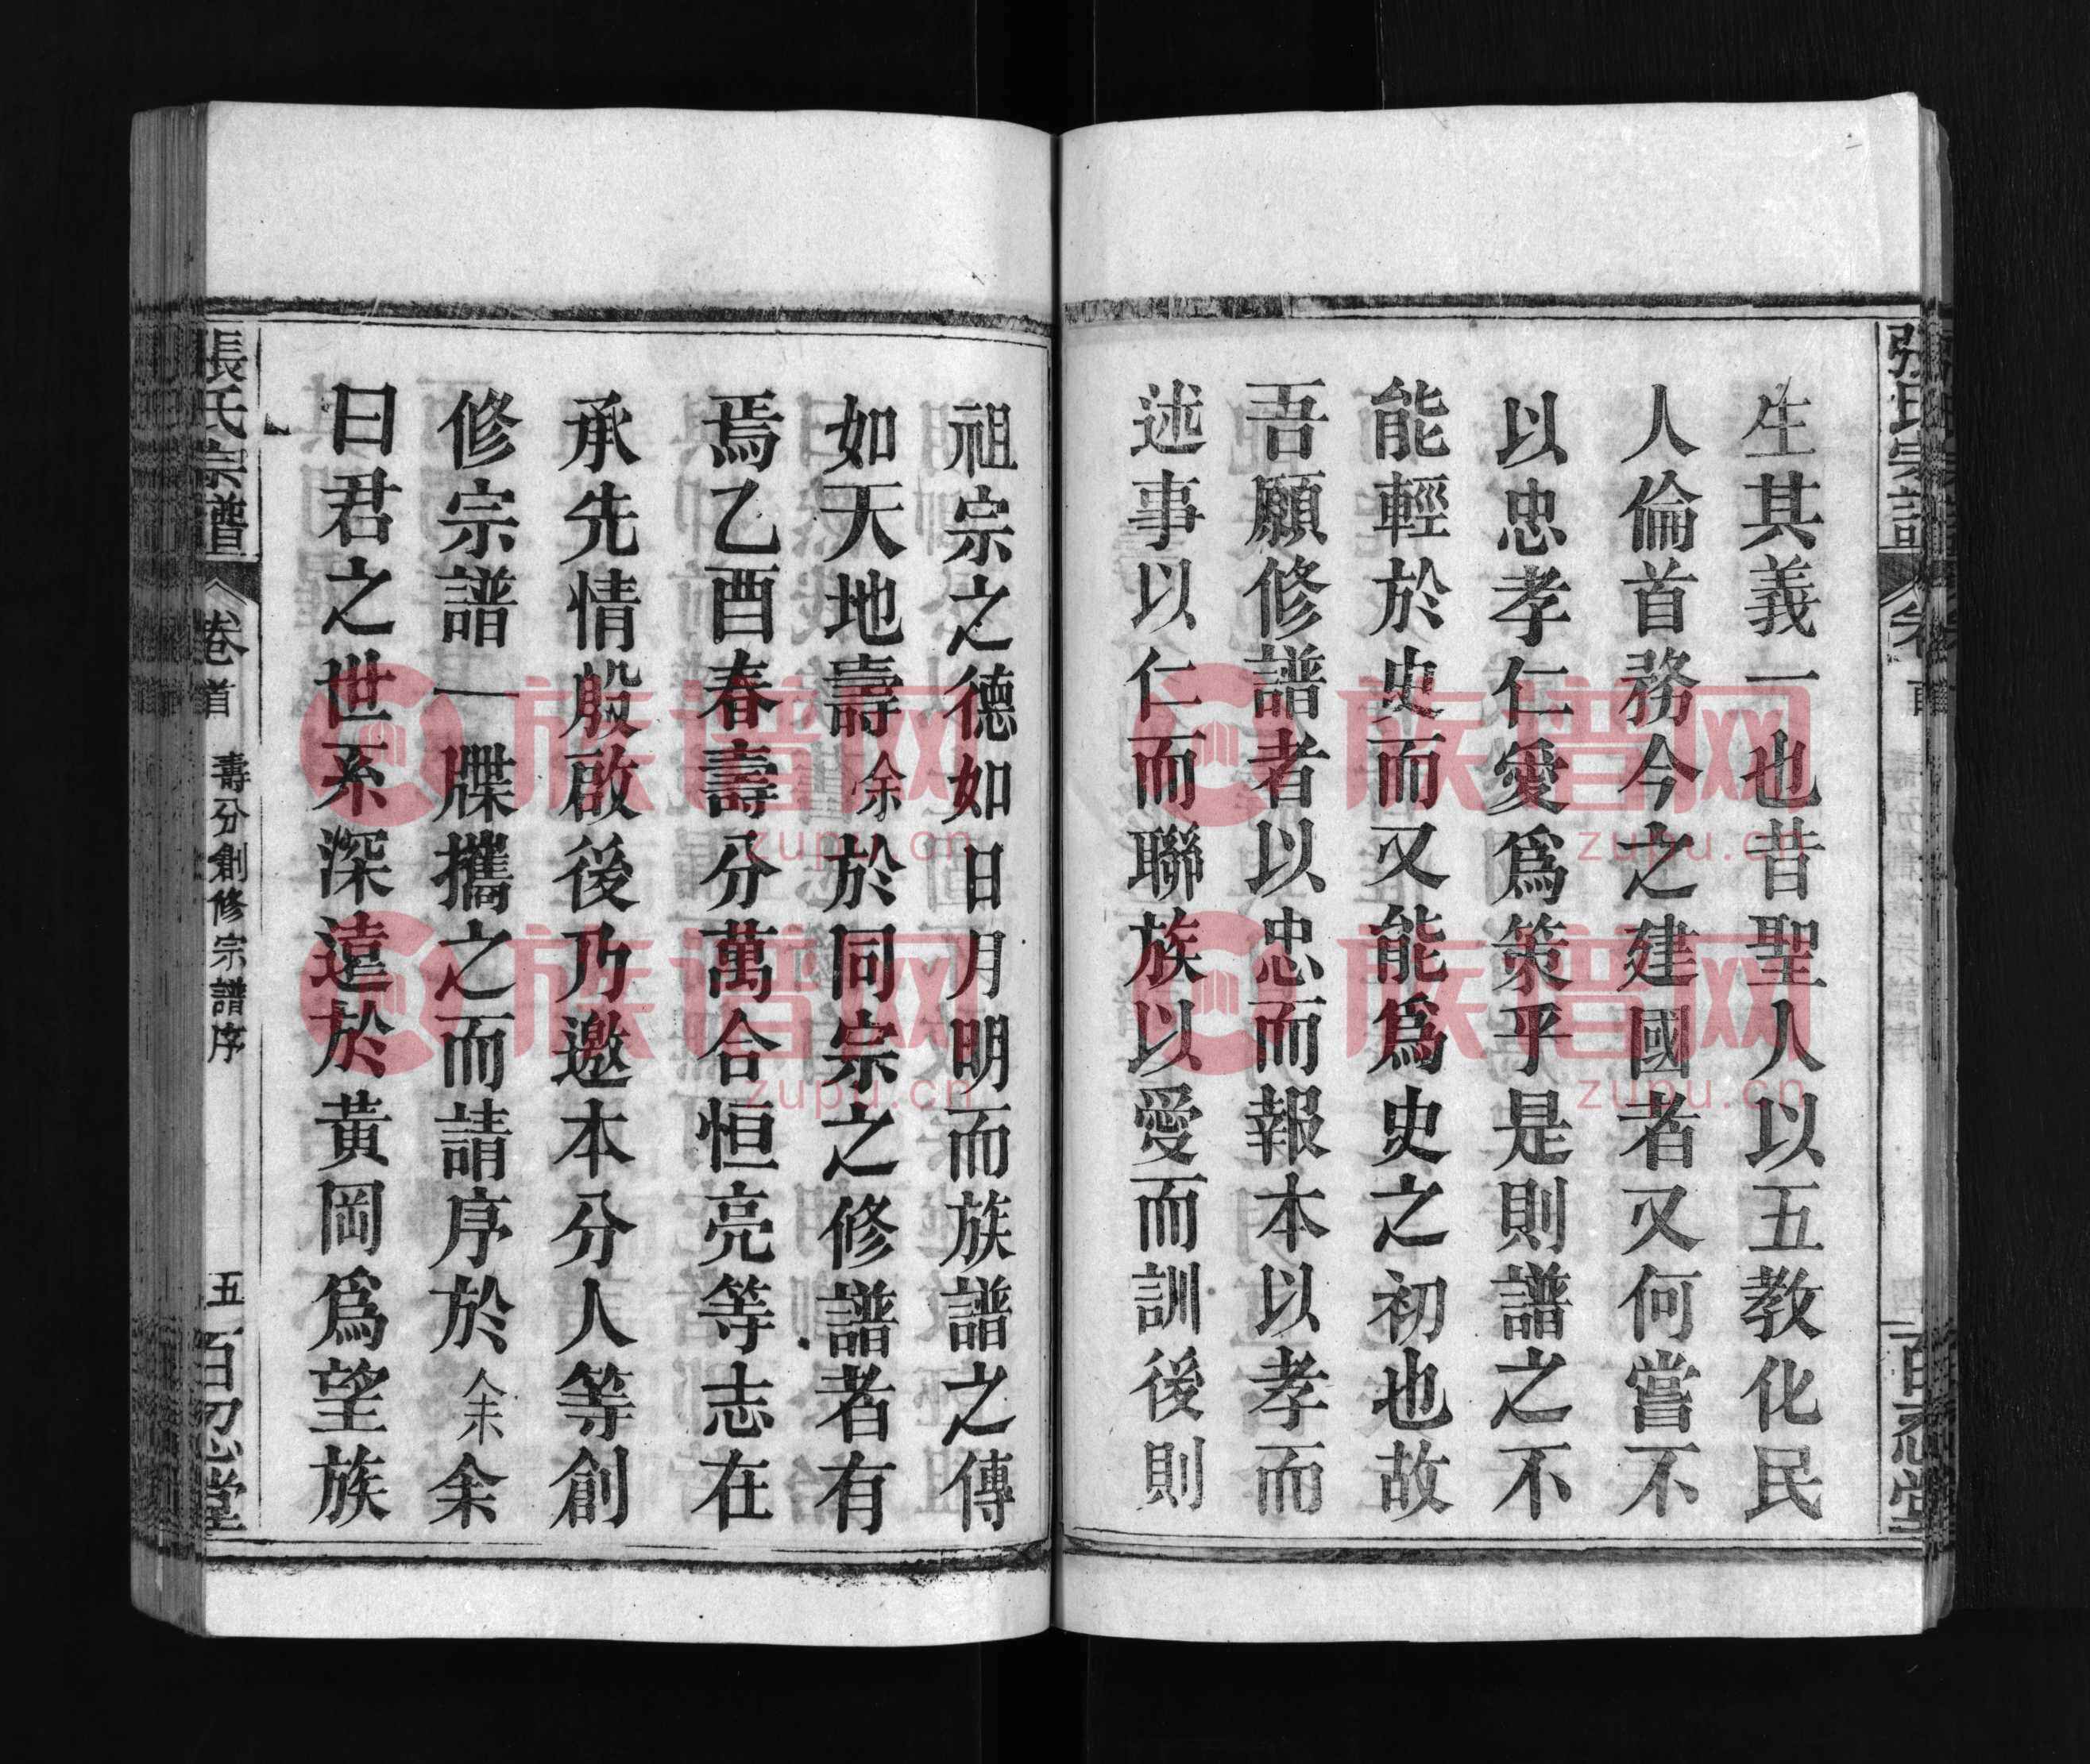 生其義一也昔聖人以五教化民
人倫首務今之建國者又何嘗不
以忠孝仁愛爲策乎是則譜之不
能輕於史而又能爲史之初也故
吾願修譜者以忠而報本以孝而
述事以仁而聯族以愛而訓後則
祖宗之德如日月明而族譜之傳
如天地壽余於同宗之修譜者有
焉乙酉春壽分萬合恒亮等志在
承先情殷啟後乃邀本分人等創
修宗譜一牒攜之而請序於余余
曰君之世系深遠於黃岡爲望族
張氏宗譜
卷首
壽分創修宗譜序
五
百忍堂
族谱网
zupu.cn
族谱网
zupu.cn
族谱网
zupu.cn
族谱网
zupu.cn